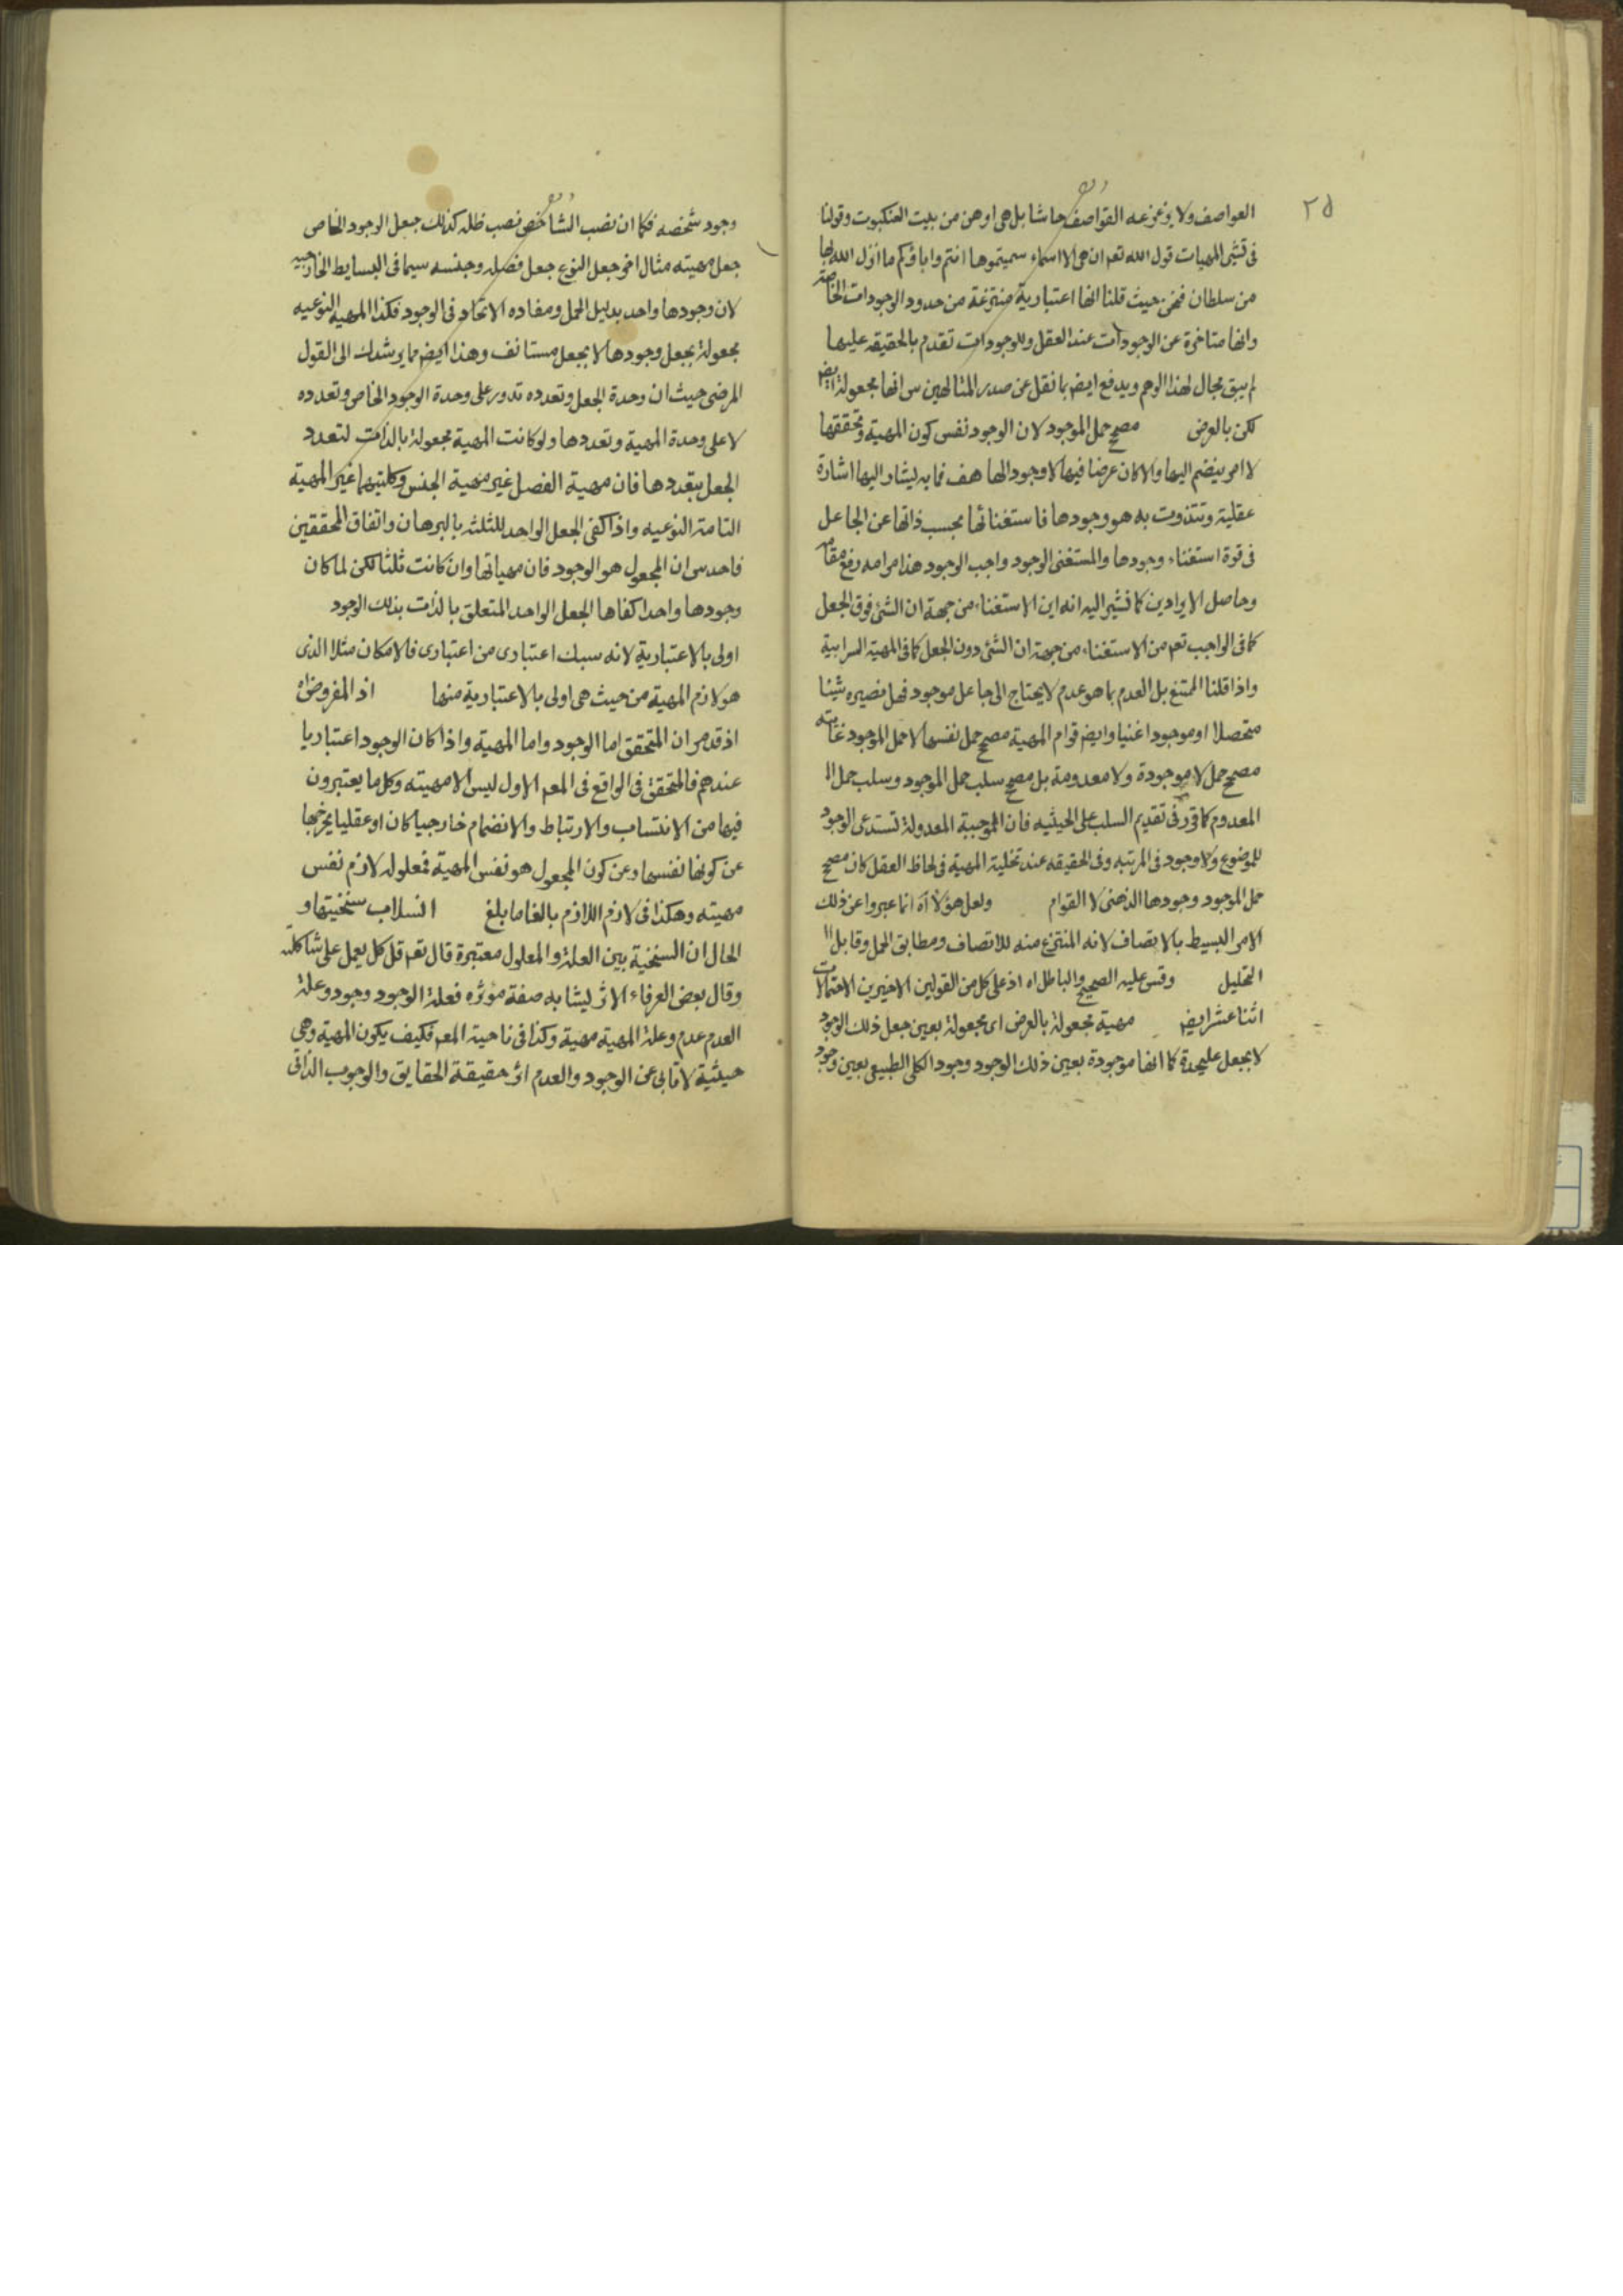 ٢٥
العواصف ولا يزعزعه القواصف حاشا بل هى اوهن من بيت العنكبوت وقولنا
فى تشئى المهيات قول الله تعم ان هى الا اسماء سميتموها انتم واباؤكم ما انزل الله بها
من سلطان فمن حيث قلنا انها اعتبارية منتزعة من حدود الوجودات الخاصة
وانها متاخرة عن الوجودات عند العقل وللوجودات تقدم بالحقيقه عليها
لم يبق مجال لهذا الوهم ويدفع ايضم بما نقل عن صدر المتالهين س انها مجعولة ايضم
لكن بالعرض مصحح حمل الموجود لان الوجود نفس كون المهية وتحققها
لا امر ينضم اليها والا كان عرضا فيها لا وجودا لها هف فما به ليشار اليها اشارة
عقلية وتتذوت به هو وجودها فاستغنائها بحسب ذاتها عن الجاعل
فى قوة استغناء وجودها والمستغنى الوجود واجب الوجود هذا مرامه رفع مقامه
وحاصل الايرادين كما نشير اليه انه اين الاستغناء من جهة ان الشئ فوق الجعل
كما فى الواجب تعم من الاستغناء من جهة ان الشئ دون الجعل كما فى المهية السرابية
واذا قلنا الممتنع بل العدم بما هو عدم لا يحتاج الى جاعل موجود فهل نصيره شيئا
متحصلا او موجودا غنيا وايضم قوام المهية مصحح حمل نفسها لا حمل الموجود غايته
مصحح حمل لا موجودة ولا معدومة بل مصحح سلب حمل الموجود وسلب حمل ال
المعدوم كما قرر فى تقديم السلب على الحيثيه فان الموجبة المعدولة تستدعى الوجود
للموضوع ولا وجود فى المرتبه وفى الحقيقه عند تخلية المهية فى لحاظ العقل كان مصحح
حمل الموجود وجودها الذهنى لا القوام ولعل هؤلاء اه انما عبروا عن ذلك
الامر البسيط بالاتصاف لانه المنتزع منه للاتصاف ومطابق الحمل وقابل ال
التحليل وقس عليه الصحيح والباطل اه اذ على كل من القولين الاخيرين الاحتمالات
اثنا عشر ايضم مهية مجعولة بالعرض اى مجعولة بعين جعل ذلك الوجود
لا بجعل عليحدة كما انها موجودة بعين ذلك الوجود وجود الكلى الطبيعى بعين وجود
وجود شخصه فكما ان نصب الشاخص نصب ظله كذلك جعل الوجود الخاص
جعل مهيته مثال اخر جعل النوع جعل فصله وجنسه سيما فى البسايط الخارجيه
لان وجودها واحد بدليل الحمل ومفاده الاتحاد فى الوجود فكذا المهية النوعيه
مجعولة بجعل وجودها لا بجعل مستانف وهذا ايضم مما يرشدك الى القول
المرضى حيث ان وحدة الجعل وتعدده تدور على وحدة الوجود الخاص وتعدده
لا على وحدة المهية وتعددها ولو كانت المهية مجعولة بالذات لتعدد
الجعل بتعددها فان مهية الفصل غير مهية الجنس وكلتيهما غير المهية
التامة النوعيه واذا كفى الجعل الواحد للثلثه بالبرهان واتفاق المحققين
فاحدس ان المجعول هو الوجود فان مهياتها وان كانت ثلثا لكن لما كان
وجودها واحدا كفاها الجعل الواحد المتعلق بالذات بذلك الوجود
اولى بالاعتبارية لانه سبك اعتبارى من اعتبارى فالامكان مثلا الذى
هو لازم المهية من حيث هى اولى بالاعتبارية منها اذ المفروض اه
اذ قد مر ان المتحقق اما الوجود واما المهية واذا كان الوجود اعتباريا
عندهم فالمتحقق فى الواقع فى المعم الاول ليس الا مهيته وكل ما يعتبرون
فيها من الانتساب والارتباط والانضمام خارجيا كان او عقليا يخرجها
عن كونها نفسها وعن كون المجعول هو نفس المهية فمعلوله لازم نفس
مهيته وهكذا فى لازم اللازم بالغا ما بلغ انسلاب سنخيتها و
الحال ان السنخية بين العلة والمعلول معتبرة قال تعم قل كل يعمل على شاكلته
وقال بعض العرفاء الاثر يشابه صفة مؤثره فعلة الوجود وجود وعلة
العدم عدم وعلة المهية مهية وكذا فى ناحية المعم فكيف يكون المهية وهى
حيثية لا تابى عن الوجود والعدم اثر حقيقة الحقايق والوجوب الذاتى